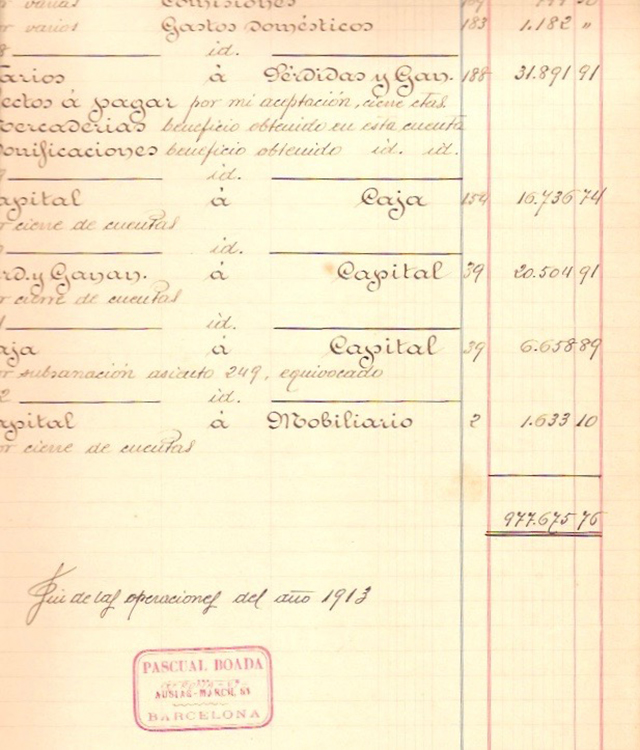 or varias Comisiones
or varios Gastos domésticos 183 1.182 "
8 id.
arios á Pérdidas y Gan. 188 31.891 91
ectos á pagar por mi aceptación, cierre ctas.
ercaderías beneficio obtenido en esta cuenta
onificaciones beneficio obtenido id. id.
9 id.
apital á Caja 154 16.736 74
r cierre de cuentas
id.
erd. y Ganan. á Capital 39 20.504 91
r cierre de cuentas
1 id.
aja á Capital 39 6.658 89
or subsanación asiento 249, equivocado
2 id.
apital á Mobiliario 2 1.633 10
or cierre de cuentas
977.675 76
Fin de las operaciones del año 1913
PASCUAL BOADA
AUSIAS-MARCH,
BARCELONA